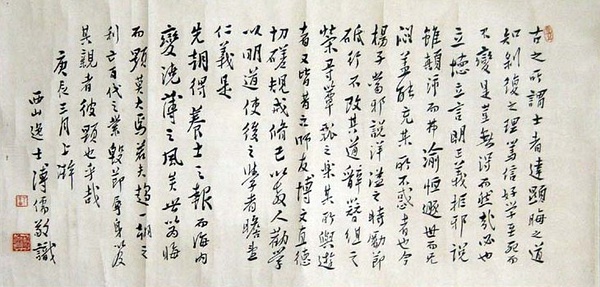 古之所謂士者達顯晦之道
知剝復之理篤信好學至死而
不變是豈無得而然哉必也
立德立言明三義推邪說
雖顛沛而弗渝恒遯世而无
悶蓋能充其所不惑者也今
楊子當邪說洋溢之時勵節
砥行不改其道辭簪組之
榮尋簞瓢之樂其所與遊
者又皆昔之師友博文直德
切磋規戒脩己以教人勸學
以明道使後之學者瞻
仁義是
先朝得養士之報而海内
變澆薄之風矣世以為晦
而顯莫大焉若夫趨一朝之
利亡百代之業毀節辱身以及
其親者彼顯也乎哉
庚辰三月上澣
西山逸士溥儒敬識